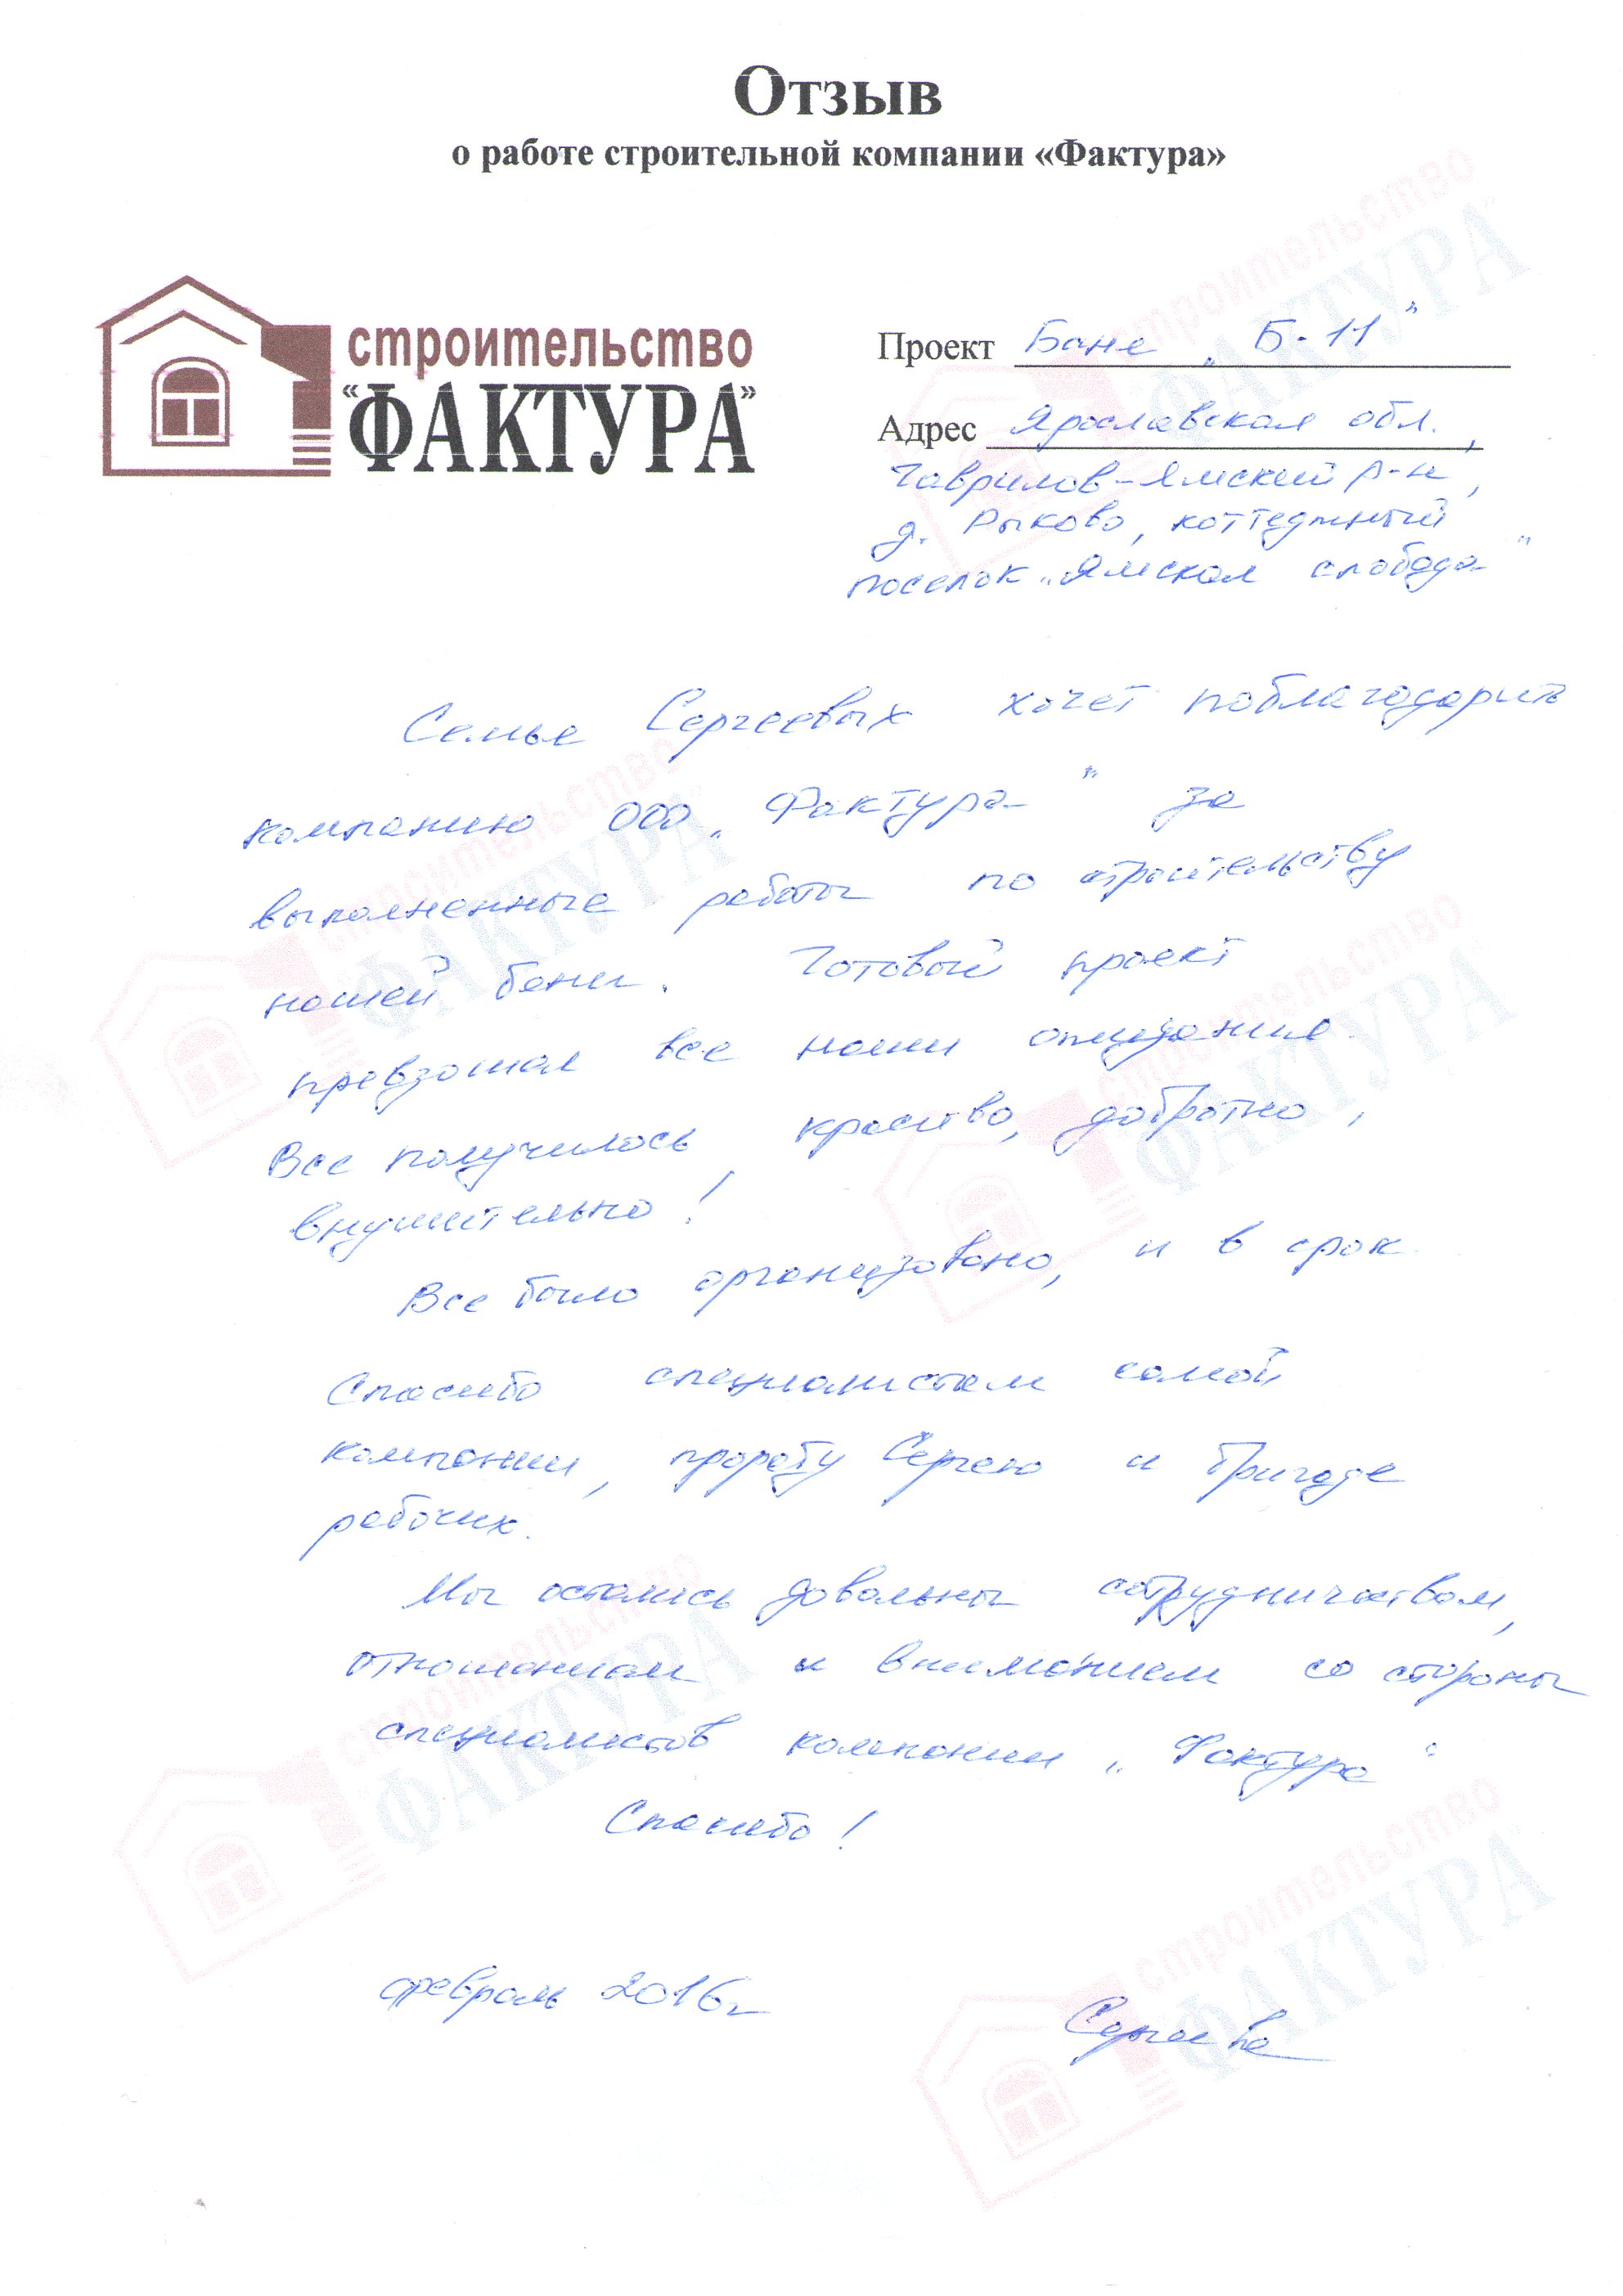 Отзыв
о работе строительной компании «Фактура»
строительство
"ФАКТУРА"
Проект Баня „Б-11"
Адрес Ярославская обл.,
Гаврилов-Ямский р-н,
д. Рыково, коттеджный
поселок „Ямская слобода"
Семья Сергеевых хочет поблагодарить
компанию ООО „Фактура" за
выполненные работы по строительству
нашей бани. Готовый проект
превзошел все наши ожидания.
Все получилось, красиво, добротно,
внушительно!
Все было организовано, и в срок
Спасибо специалистам самой
компании, прорабу Сергею и бригаде
рабочих.
Мы остались довольны сотрудничеством,
отношением и вниманием со стороны
специалистов компании „Фактура"
Спасибо!
февраль 2016г
Сергеева